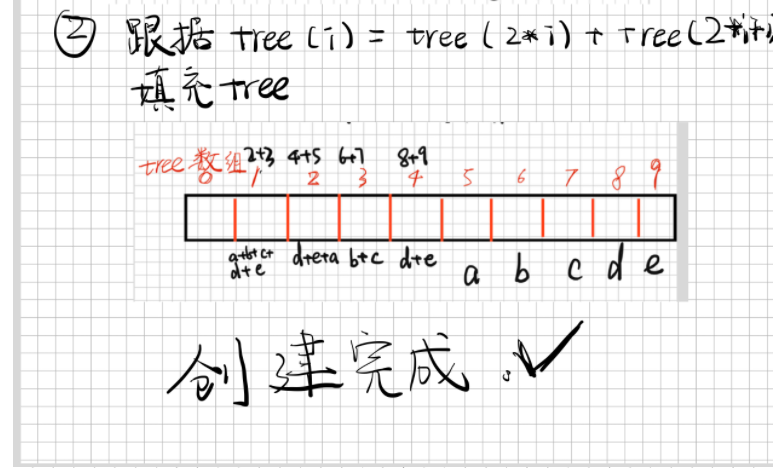 ② 跟据 tree (i) = tree (2*i) + Tree(2*i+1
填充tree
tree 数组 2+3 4+5 6+7 8+9
0 1 2 3 4 5 6 7 8 9
a+b+c+ d+e+a b+c d+e a b c d e
d+e
创建完成.✓